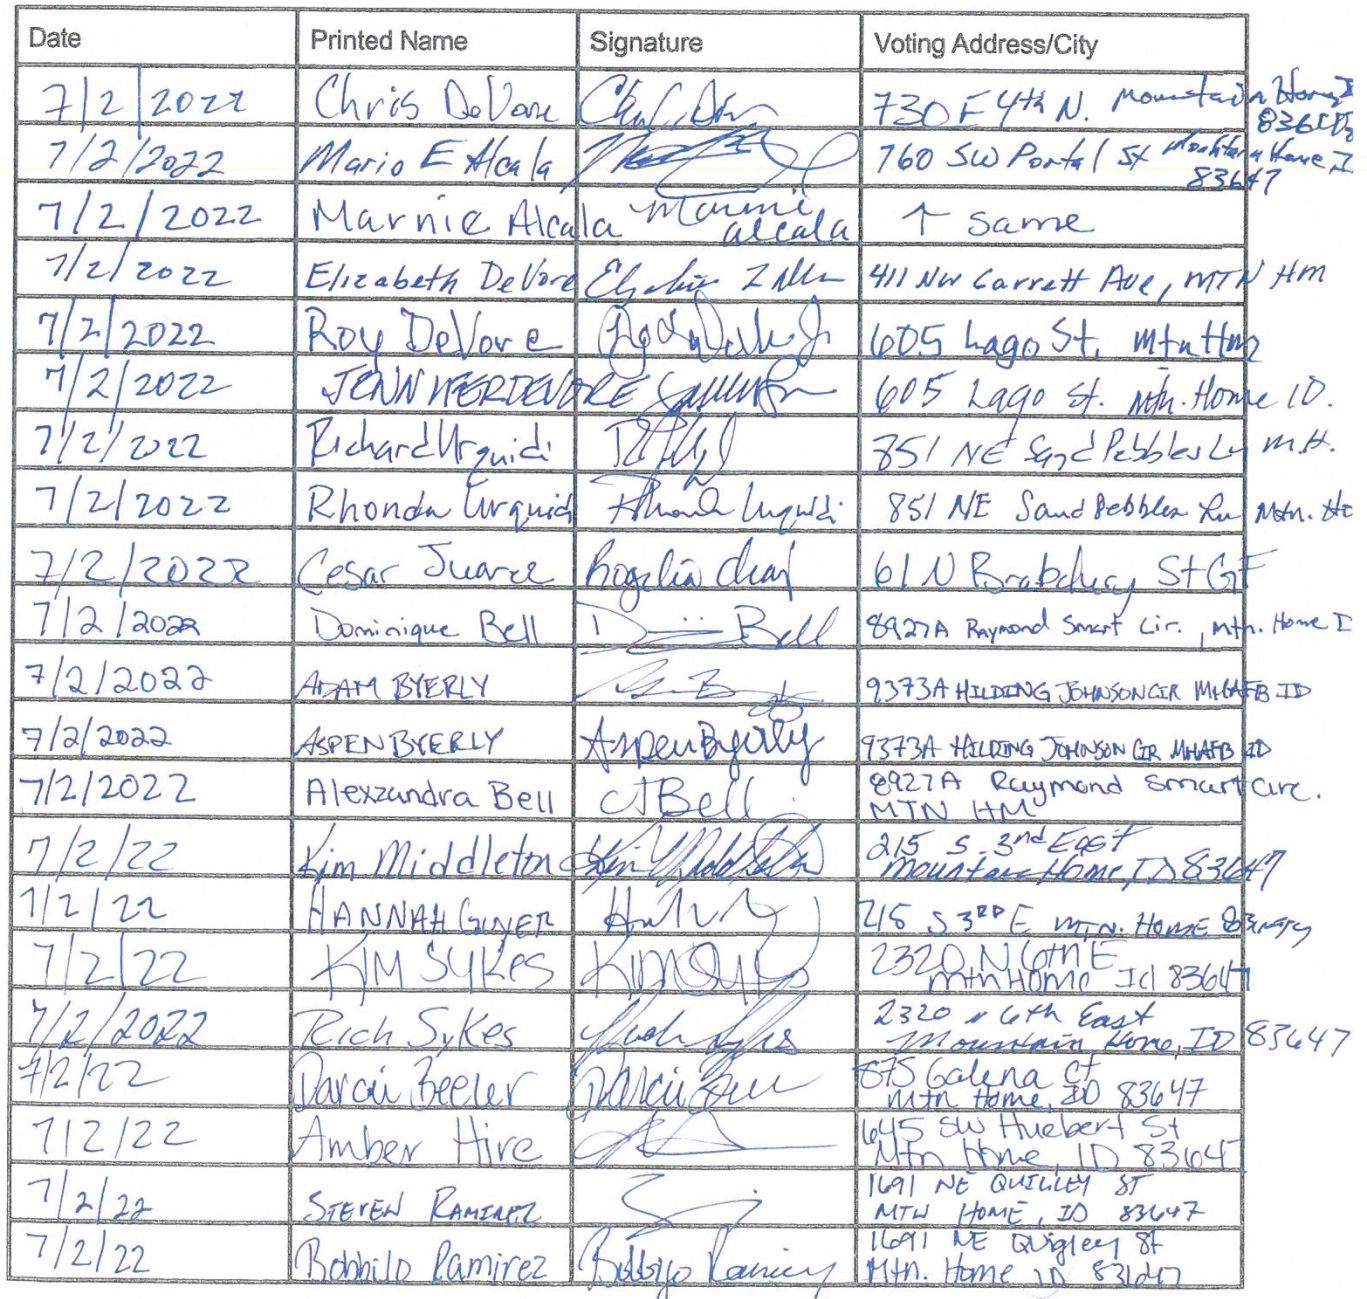 Date Printed Name Signature Voting Address/City
7/2/2022 Chris DeVore 730 E 4th N. Mountain Home
7/2/2022 Mario E Alcala 760 SW Portal St Mountain Home I
83647
7/2/2022 Marnie Alcala Marnie alcala ↑ same
7/2/2022 Elizabeth DeVore 411 NW Garrett Ave, MTN HM
7/2/2022 Roy DeVore 605 Lago St. Mtn Hm
7/2/2022 JENNIFER DEVORE 605 Lago St. Mtn. Home ID.
7/2/2022 Richard Urquidi 851 NE Sand Pebbles Ln M.H.
7/2/2022 Rhonda Urquidi Rhonda Urquidi 851 NE Sand Pebbles Ln Mtn. Ho
7/2/2022 Cesar Juarez 61 N St GF
7/2/2022 Dominique Bell Bell 8927A Raymond Smart Cir., Mtn. Home I
7/2/2022 ADAM BYERLY 9373A HILDING JOHNSON CIR MHAFB ID
7/2/2022 ASPEN BYERLY Aspen Byerly 9373A HILDING JOHNSON CIR MHAFB ID
7/2/2022 Alexzandra Bell Bell 8927A Raymond Smart Circ.
MTN HM
7/2/22 Kim Middleton Kim Middleton 215 S. 3rd East
Mountain Home, ID 83647
7/2/22 HANNAH GUYER 215 S 3RD E MTN. HOME 83647
7/2/22 KIM SYKES Kim Sykes 2320 N 6th E
Mtn Home Id 83647
7/2/2022 Rich Sykes Rich Sykes 2320 N 6th East
Mountain Home, ID 83647
7/2/22 Darci Beeler 875 Galena Ct
Mtn Home, ID 83647
7/2/22 Amber Hire 645 SW Huebert St
Mtn Home, ID 83647
7/2/22 STEVEN RAMIREZ 1691 NE QUIGLEY ST
MTN HOME, ID 83647
7/2/22 Bobbilo Ramirez 1691 NE Quigley St
Mtn. Home ID 83647